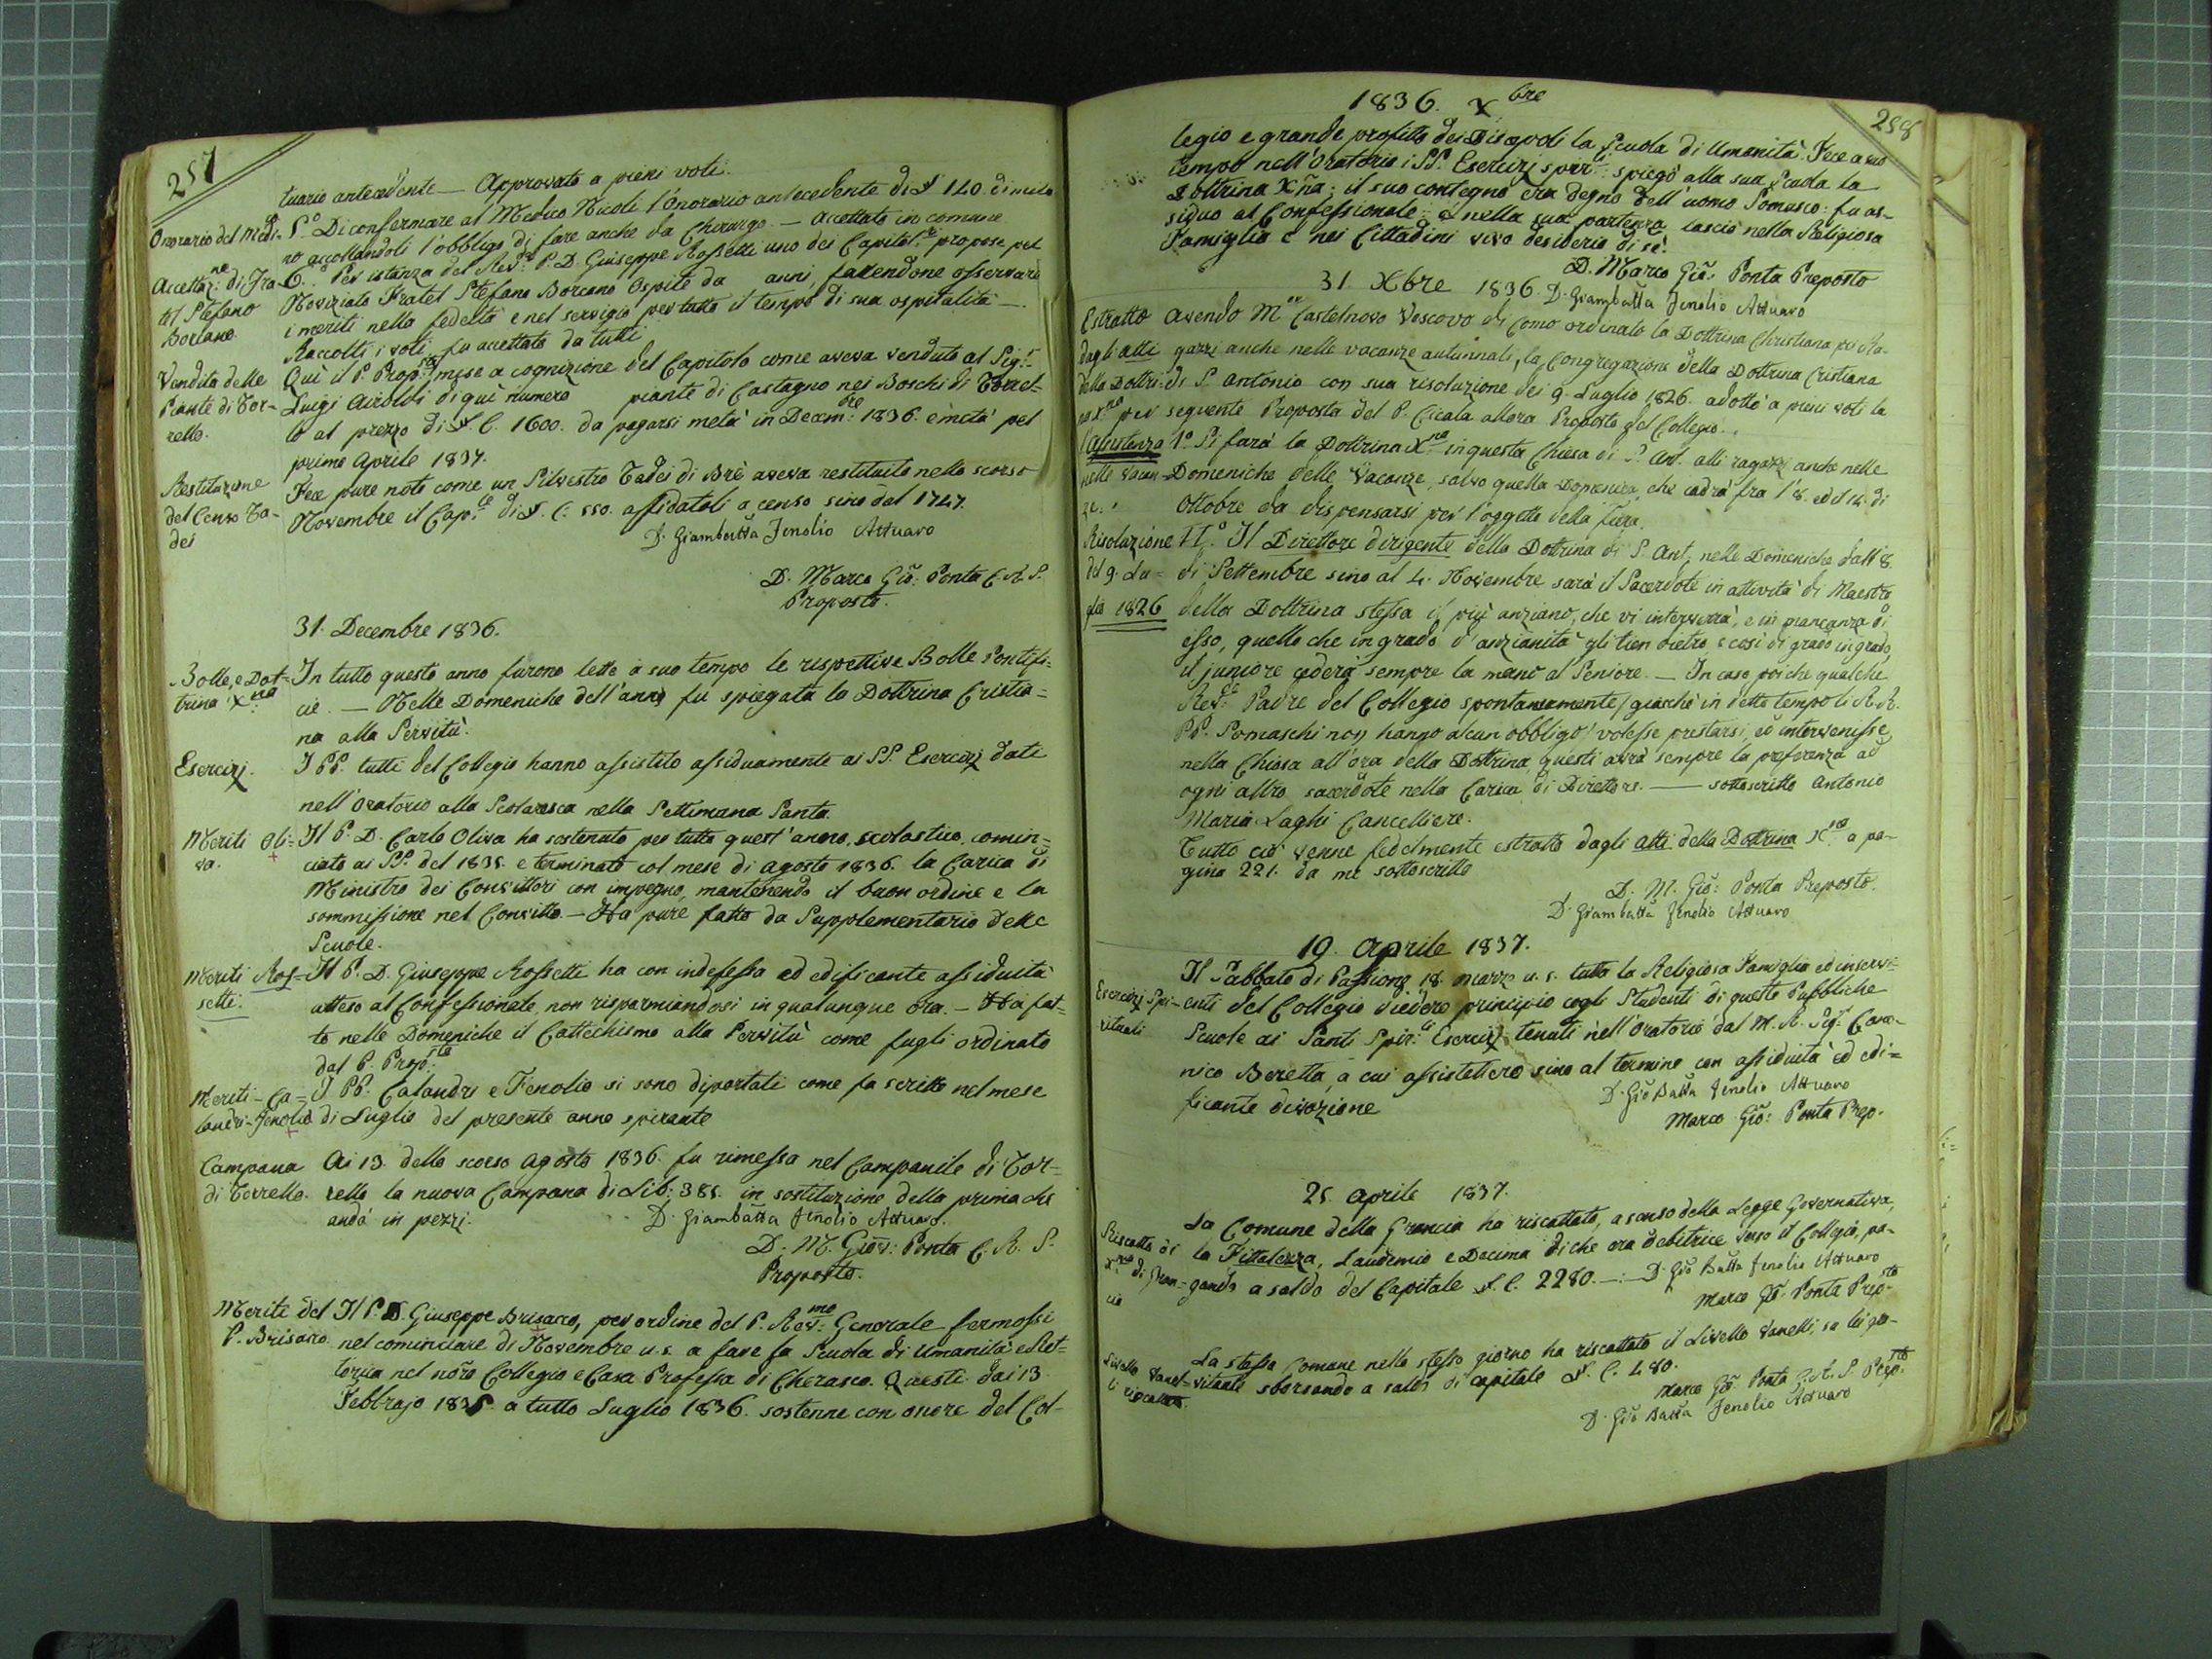 257
tuario antecedente — Approvato a pieni voti.
Onorario del Medi- 5.° Di confermare al Medico Nicoli l'onorario antecedente di £ 120. di mila-
no accollandoli l'obbligo di fare anche da Chirurgo. — Accettato in comune
Accettaz.ne di Fra- 6.° Per istanza del Rev.do P. D. Giuseppe Rossetti uno dei Capitol.ri propose pel
tel Stefano Noviziato Fratel Stefano Borcano Ospite da anni, facendone osservare
Borcano. i meriti nella fedeltà e nel servigio per tutto il tempo di sua ospitalità —.
Raccolti i voti fu accettato da tutti
Vendita delle Quì il P. Prop.to mise a cognizione del Capitolo come aveva venduto al Sig.r
Piante di Tor- Luigi Airoldi di quì numero piante di Castagno nei Boschi di Torrel-
rello. lo al prezzo di £ C. 1600. da pagarsi metà in Decem.bre 1836. e metà pel
primo Aprile 1837.
Restituzione Fece pure noto come un Silvestro Tadei di Brè aveva restituito nello scorso
del Censo Ta- Novembre il Cap.le di £. C. 550. affidatoli a censo sino dal 1747.
dei D. Giambatta Fenolio Attuaro
D. Marco Gio: Ponta C. R. S.
Proposto.
31. Decembre 1836.
Bolle, e Dot- In tutto questo anno furono lette a suo tempo le rispettive Bolle Pontifi-
trina Xna cie. — Nelle Domeniche dell'anno fu spiegata la Dottrina Cristia-
na alla Servitù.
Esercizi. I PP. tutti del Collegio hanno assistito assiduamente ai SS. Esercizi dati
nell'Oratorio alla Scolaresca nella Settimana Santa.
Meriti Oli- Il P. D. Carlo Oliva ha sostenuto per tutto quest'anno scolastico, comin-
va. ciato ai SS. del 1835. e terminato col mese di Agosto 1836. la Carica di
Ministro dei Convittori con impegno, mantenendo il buon ordine e la
sommissione nel Convitto. — Ha pure fatto da Supplementario delle
Scuole.
Meriti Ros- Il P. D. Giuseppe Rossetti ha con indefessa ed edificante assiduità
setti. atteso al Confessionale, non risparmiandosi in qualunque ora. — Ha fat-
to nelle Domeniche il Cattechismo alla Servitù come fugli ordinato
dal P. Prop.sto
Meriti - Ca- I PP. Calandri e Fenolio si sono diportati come fu scritto nel mese
landri-Fenolio di Luglio del presente anno spirante
Campana Ai 13. dello scorso Agosto 1836. fu rimessa nel Campanile di Tor-
di Torrello. rello la nuova Campana di Lib: 385. in sostituzione della prima che
andò in pezzi. D. Giambatta Fenolio Attuaro.
D. M. Giov: Ponta C. R. S.
Proposto.
Meriti del Il P. D. Giuseppe Brisacco, per ordine del P. Rev.mo Generale fermossi
P. Brisacco nel cominciare di Novembre u. s. a fare la Scuola di Umanità e Ret-
torica nel nõro Collegio e Casa Professa di Cherasco. Questi dai 13.
Febbrajo 1835. a tutto Luglio 1836. sostenne con onore del Col-
1836. Xbre
258
legio e grande profitto dei Discepoli la Scuola di Umanità. Fece a suo
tempo nell'Oratorio i SS. Esercizi spir.li: spiegò alla sua Scuola la
Dottrina Xña; il suo contegno era degno dell'uomo Somasco: fu as-
siduo al Confessionale: e nella sua partenza lasciò nella Religiosa
Famiglia e nei Cittadini vivo desiderio di sè.
D. Marco Gio: Ponta Preposto
31. Xbre 1836. D. Giambatta Fenolio Attuaro
Estratto Avendo M.or Castelnovo Vescovo di Como ordinato la Dottrina Christiana pei Ra-
dagli Atti gazzi anche nelle vacanze autunnali, la Congregazione della Dottrina Cristiana
della Dottri- di S. Antonio con sua risoluzione dei 9. Luglio 1826. adottò a pieni voti la
na Xna per seguente Proposta del P. Cicala allora Proposto del Collegio.
l'Assistenza 1.° Si farà la Dottrina Xna in questa Chiesa di S. Ant. alli ragazzi anche nelle
nelle Vacan- Domeniche delle Vacanze, salvo quella Domenica, che cadrà fra l'8. ed il 14. di
ze. Ottobre da dispensarsi per l'oggetto della fiera.
Risoluzione II.° Il Direttore dirigente della Dottrina di S. Ant. nelle Domeniche dall'8.
del 9. Lu- di Settembre sino al 4. Novembre sarà il Sacerdote in attività di Maestro
glio 1826 della Dottrina stessa il più anziano, che vi interverrà, e in mancanza di
esso, quello che in grado d'anzianità gli tien dietro, e così di grado in grado,
il juniore cederà sempre la mano al Seniore. — In caso poi che qualche
Rev.do Padre del Collegio spontaneamente (giacchè in detto tempo li R. R.
PP. Somaschi non hanno alcun obbligo) volesse prestarsi, ed intervenisse
nella Chiesa all'ora della Dottrina, questi avrà sempre la preferenza ad
ogni altro sacerdote nella Carica di Direttore. — sottoscritto Antonio
Maria Laghi Cancelliere.
Tutto ciò venne fedelmente estratto dagli Atti della Dottrina Xna a pa-
gina 221. da me sottoscritto
D. M. Gio: Ponta Preposto.
D. Giambatta Fenolio Attuaro
19. Aprile 1837.
Il Sabbato di Passione 18. Marzo u. s. tutta la Religiosa Famiglia ed inservi-
Esercizi Spi- enti del Collegio diedero principio cogli Studenti di queste Pubbliche
rituali Scuole ai Santi Spir.li Esercizi tenuti nell'Oratorio dal M. R. Sig.r Cano-
nico Beretta, a cui assistettero sino al termine con assiduità ed edi-
ficante divozione D. Gio Batta Fenolio Attuaro
Marco Gio: Ponta Prep.
25. Aprile 1837.
La Comune della Grancia ha riscattato, a senso della Legge Governativa,
Riscatto di la Fittalezza, Laudemio e Decima di che era debitrice verso il Collegio, pa-
di Gran- gando a saldo del Capitale £. C. 2280. —: — D. Gio Batta Fenolio Attuaro
cia Marco Gio. Ponta Prep.sto
La stessa Comune nello stesso giorno ha riscattato il Livello Vanelli, su lei gra-
Livello Vanel- vitante sborsando a saldo di capitale £. C. 480.
li riscattato. Marco Gio. Ponta C. R. S. Prep.sto
D. Gio Batta Fenolio Attuaro